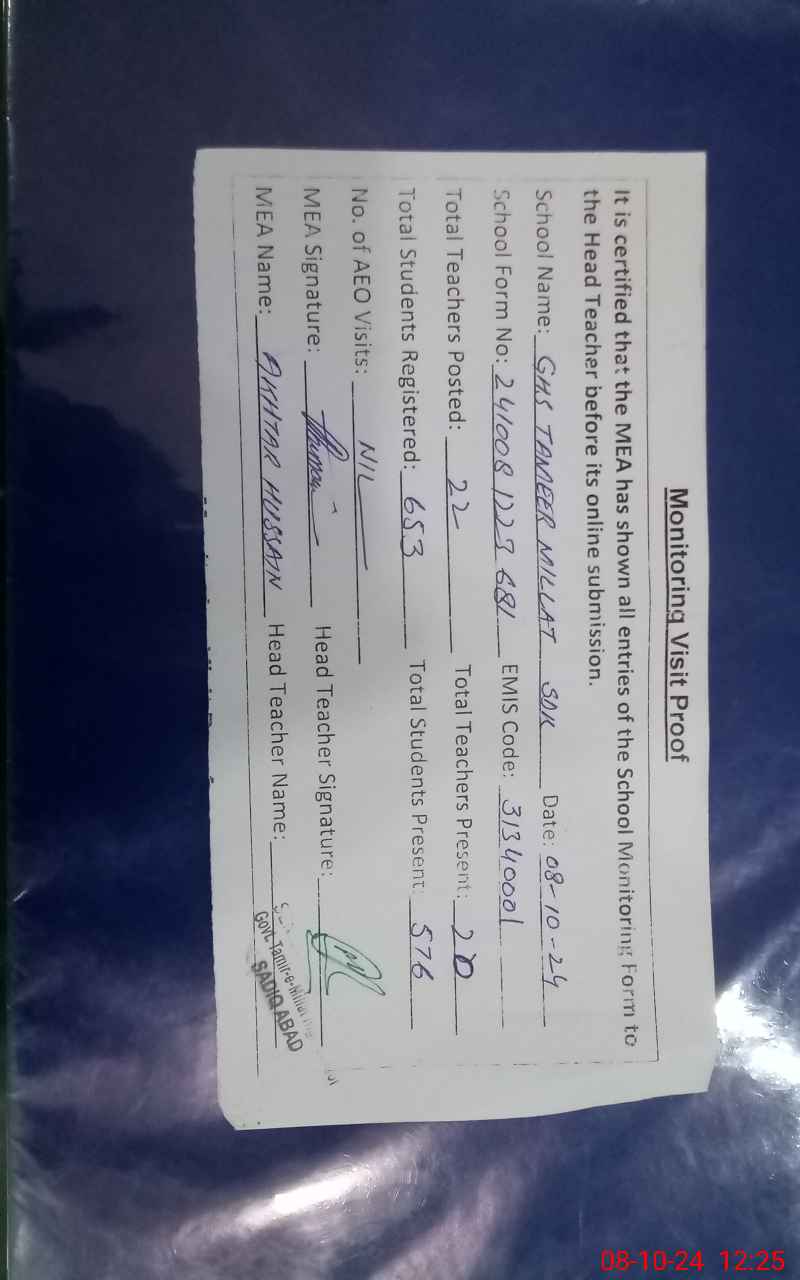 Monitoring Visit Proof
It is certified that the MEA has shown all entries of the School Monitoring Form to
the Head Teacher before its online submission.
School Name: GHS TAMEER MILLAT SDK Date: 08-10-24
School Form No: 241008 1223 681 EMIS Code: 31340001
Total Teachers Posted: 22 Total Teachers Present: 20
Total Students Registered: 653 Total Students Present: 576
No. of AEO Visits: NIL
MEA Signature: Head Teacher Signature:
MEA Name: AKHTAR HUSSAIN Head Teacher Name:
Govt. Tamir-e-Millat
SADIQ ABAD
08-10-24 12:25